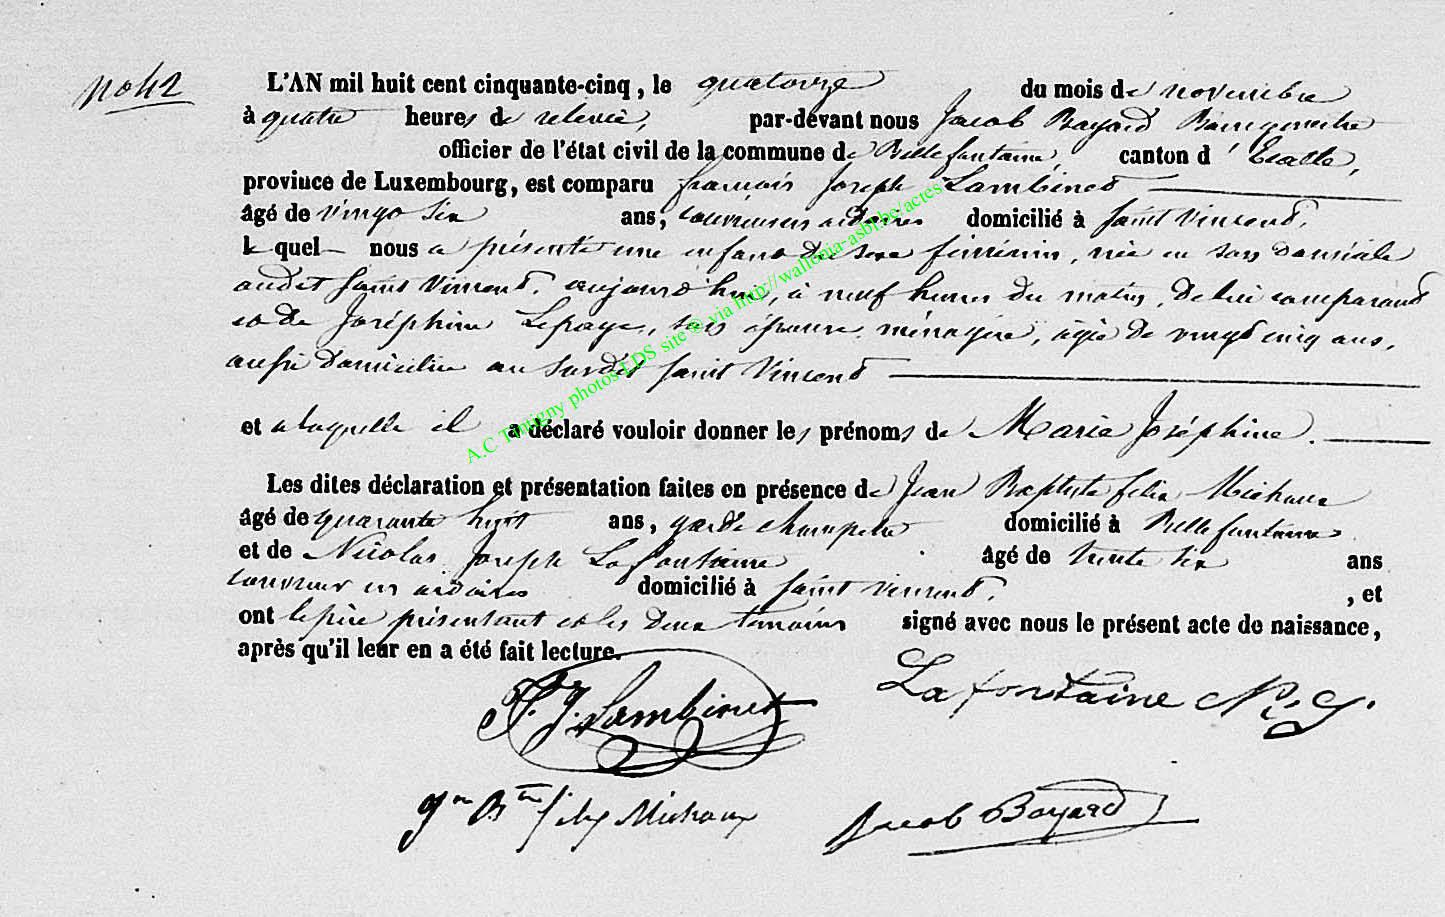 No 42
L'AN mil huit cent cinquante-cinq, le quatorze du mois de novembre
à quatre heures de relevée, par-devant nous Jacob Bayard Bourgmestre
officier de l'état civil de la commune de Bellefontaine, canton d'Etalle,
province de Luxembourg, est comparu francois Joseph Lambinet
âgé de vingt six ans, couvreur en ardoises domicilié à Saint Vincent,
lequel nous a présenté une enfant du sexe féminin, née en son domicile
audit Saint Vincent, aujourd'hui, à neuf heures du matin, de lui comparant
et de Joséphine Lepage, son épouse, ménagère, agée de vingt cinq ans,
aussi domiciliée au susdit Saint Vincent
et a laquelle il a déclaré vouloir donner les prénoms de Maria Joséphine.
Les dites déclaration et présentation faites en présence de Jean Baptiste felix Michaux
âgé de quarante huit ans, garde champetre domicilié à Bellefontaine
et de Nicolas Joseph Lafontaine âgé de trente six ans
couvreur en ardoises domicilié à Saint Vincent, , et
ont le père présentant et les deux temoins signé avec nous le présent acte de naissance,
après qu'il leur en a été fait lecture.
F. J. Lambinet
Lafontaine N. J.
Jn Bte felix Michaux
Jacob Bayard
A.C Tintigny photos LDS site © via http://wallonia-asbl.be/actes